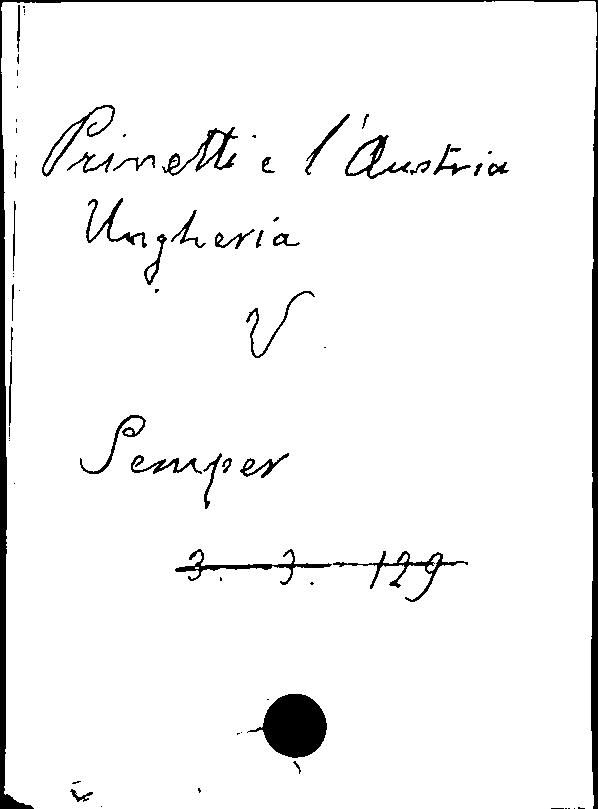 Prinetti e l'Austria
Ungheria
V
Semper
3. 3. 129